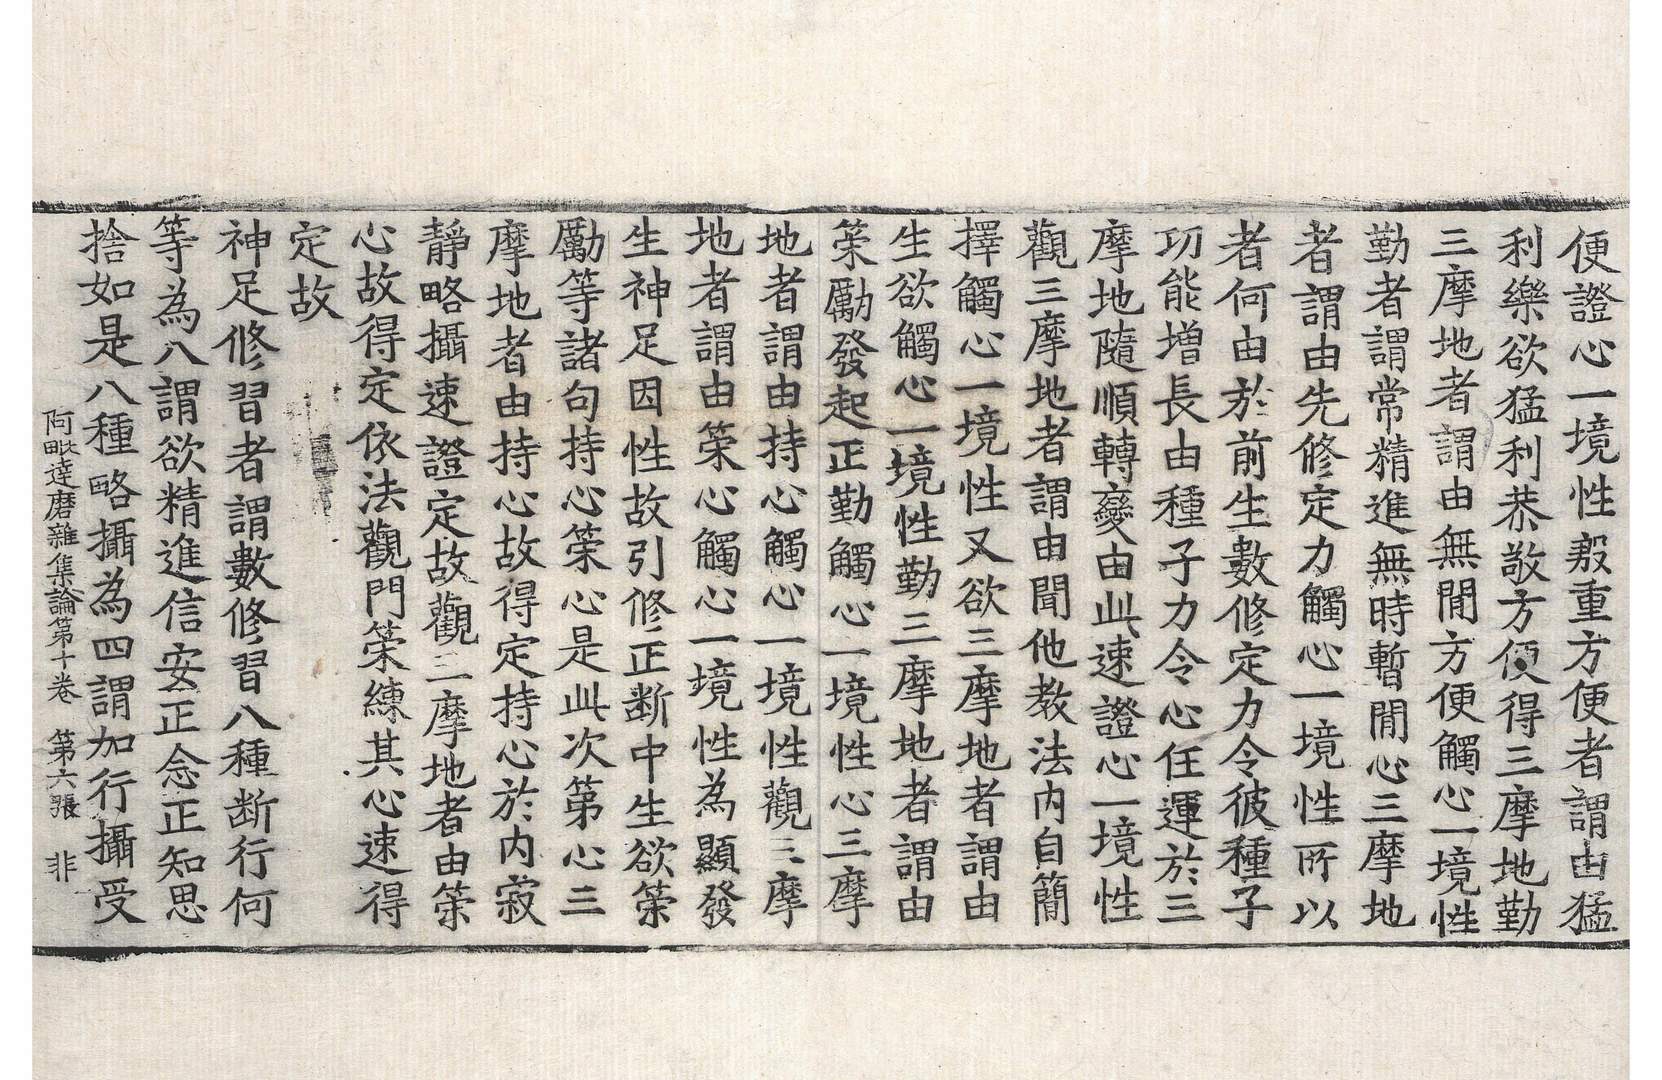 便證心一境性殷重方便者謂由猛
利樂欲猛利恭敬方便得三摩地勤
三摩地者謂由無間方便觸心一境性
勤者謂常精進無時暫間心三摩地
者謂由先修定力觸心一境性所以
者何由於前生數修定力令彼種子
功能增長由種子力令心任運於三
摩地隨順轉變由此速證心一境性
觀三摩地者謂由聞他教法內自簡
擇觸心一境性又欲三摩地者謂由
生欲觸心一境性勤三摩地者謂由
策勵發起正勤觸心一境性心三摩
地者謂由持心觸心一境性觀三摩
地者謂由策心觸心一境性為顯發
生神足因性故引修正断中生欲策
勵等諸句持心策心是此次第心三
摩地者由持心故得定持心於內寂
靜略攝速證定故觀三摩地者由策
心故得定依法觀門策練其心速得
定故
神足修習者謂數修習八種断行何
等為八謂欲精進信安正念正知思
捨如是八種略攝為四謂加行攝受
阿毗達磨雜集論第十卷 第六張 非